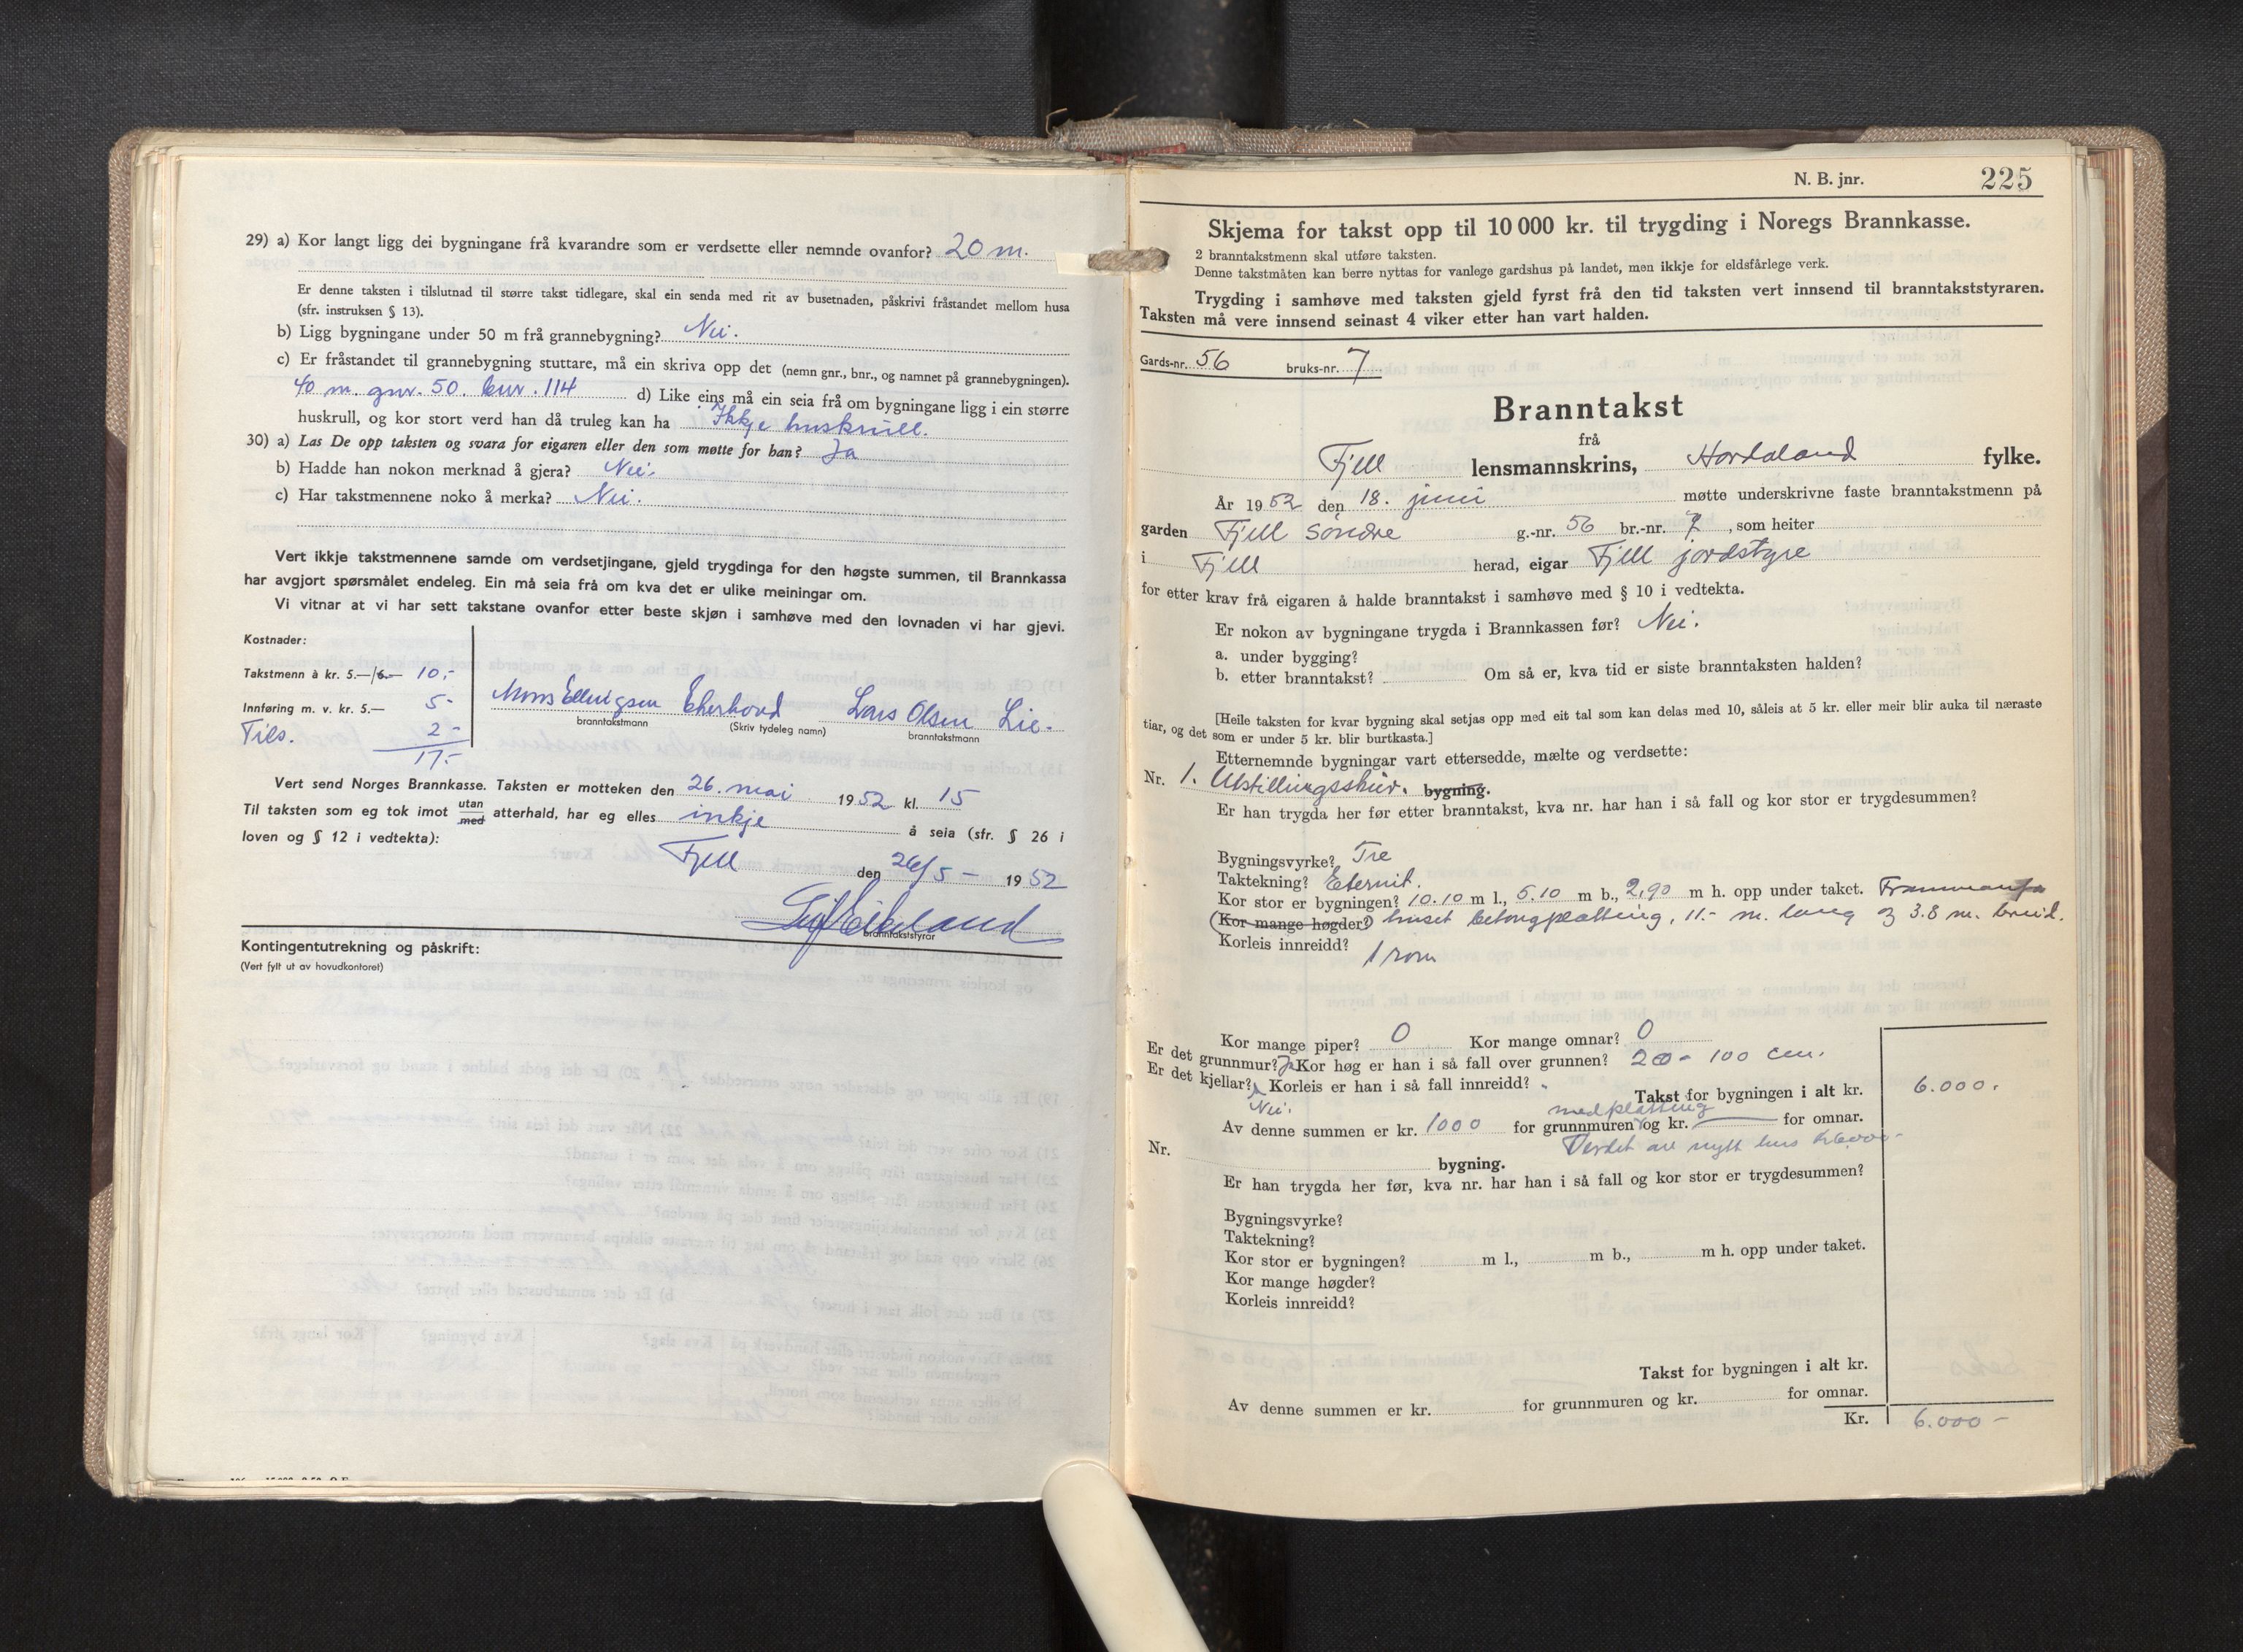 29) a) Kor langt ligg dei bygningane frå kvarandre som er verdsette eller nemnde ovanfor? 20 m.
Er denne taksten i tilslutnad til større takst tidlegare, skal ein senda med rit av busetnaden, påskrivi fråstandet mellom husa
(sfr. instruksen § 13).
b) Ligg bygningane under 50 m frå grannebygning? Nei.
c) Er fråstandet til grannebygning stuttare, må ein skriva opp det (nemn gnr., bnr., og namnet på grannebygningen).
40 m. gnr. 50. bnr. 114 d) Like eins må ein seia frå om bygningane ligg i ein større
huskrull, og kor stort verd han då truleg kan ha Ikkje huskrull.
30) a) Las De opp taksten og svara for eigaren eller den som møtte for han? Ja
b) Hadde han nokon merknad å gjera? Nei.
c) Har takstmennene noko å merka? Nei.
Vert ikkje takstmennene samde om verdsetjingane, gjeld trygdinga for den høgste summen, til Brannkassa
har avgjort spørsmålet endeleg. Ein må seia frå om kva det er ulike meiningar om.
Vi vitnar at vi har sett takstane ovanfor etter beste skjøn i samhøve med den lovnaden vi har gjevi.
Kostnader:
Takstmenn à kr. 5.—/6.— 10,-
Innføring m. v. kr. 5.— 5-
Tils. 2-
17.-
Mons Ellingsen Ekerhovd Lars Olsen Lie.
branntakstmann (Skriv tydeleg namn) branntakstmann
Vert send Norges Brannkasse. Taksten er motteken den 26. mai 1952 kl. 15
Til taksten som eg tok imot utan med atterhald, har eg elles inkje å seia (sfr. § 26 i
loven og § 12 i vedtekta):
Fjell den 26/5 - 1952
branntakststyrar
Kontingentutrekning og påskrift:
(Vert fylt ut av hovudkontoret)
N. B. jnr. 225
Skjema for takst opp til 10 000 kr. til trygding i Noregs Brannkasse.
2 branntakstmenn skal utføre taksten.
Denne takstmåten kan berre nyttas for vanlege gardshus på landet, men ikkje for eldsfårlege verk.
Trygding i samhøve med taksten gjeld fyrst frå den tid taksten vert innsend til branntakststyraren.
Taksten må vere innsend seinast 4 viker etter han vart halden.
Gards-nr. 56 bruks-nr. 7
Branntakst
frå
Fjell lensmannskrins, Hordaland fylke.
År 1952 den 18. juni møtte underskrivne faste branntakstmenn på
garden Fjell Søndre g.-nr. 56 br.-nr. 7, som heiter
i Fjell herad, eigar Fjell jordstyre
for etter krav frå eigaren å halde branntakst i samhøve med § 10 i vedtekta.
Er nokon av bygningane trygda i Brannkassen før? Nei.
a. under bygging?
b. etter branntakst? Om så er, kva tid er siste branntaksten halden?
[Heile taksten for kvar bygning skal setjas opp med eit tal som kan delas med 10, såleis at 5 kr. eller meir blir auka til næraste
tiar, og det som er under 5 kr. blir burtkasta.]
Etternemnde bygningar vart ettersedde, mælte og verdsette:
Nr. 1. Utstillingsskur. bygning.
Er han trygda her før etter branntakst, kva nr. har han i så fall og kor stor er trygdesummen?
Bygningsvyrke? Tre
Taktekning? Eternit.
Kor stor er bygningen? 10.10 m l., 5.10 m b., 2,90 m h. opp under taket. Frammanfor
(Kor mange høgder?) huset betongplatting, 11.- m. lang og 3.8 m. breid.
Korleis innreidd? 1 rom
Kor mange piper? 0 Kor mange omnar? 0
Er det grunnmur? Ja Kor høg er han i så fall over grunnen? 20 - 100 cm.
Er det kjellar? Korleis er han i så fall innreidd?
Nei.
Takst for bygningen i alt kr. 6.000.
med platting
Av denne summen er kr. 1000 for grunnmuren og kr. — for omnar.
Verdet av nytt hus kr 6000-
Nr. bygning.
Er han trygda her før, kva nr. har han i så fall og kor stor er trygdesummen?
Bygningsvyrke?
Taktekning?
Kor stor er bygningen? m l., m b., m h. opp under taket.
Kor mange høgder?
Korleis innreidd?
Takst for bygningen i alt kr.
Av denne summen er kr. for grunnmuren og kr. for omnar.
Kr. 6.000 -